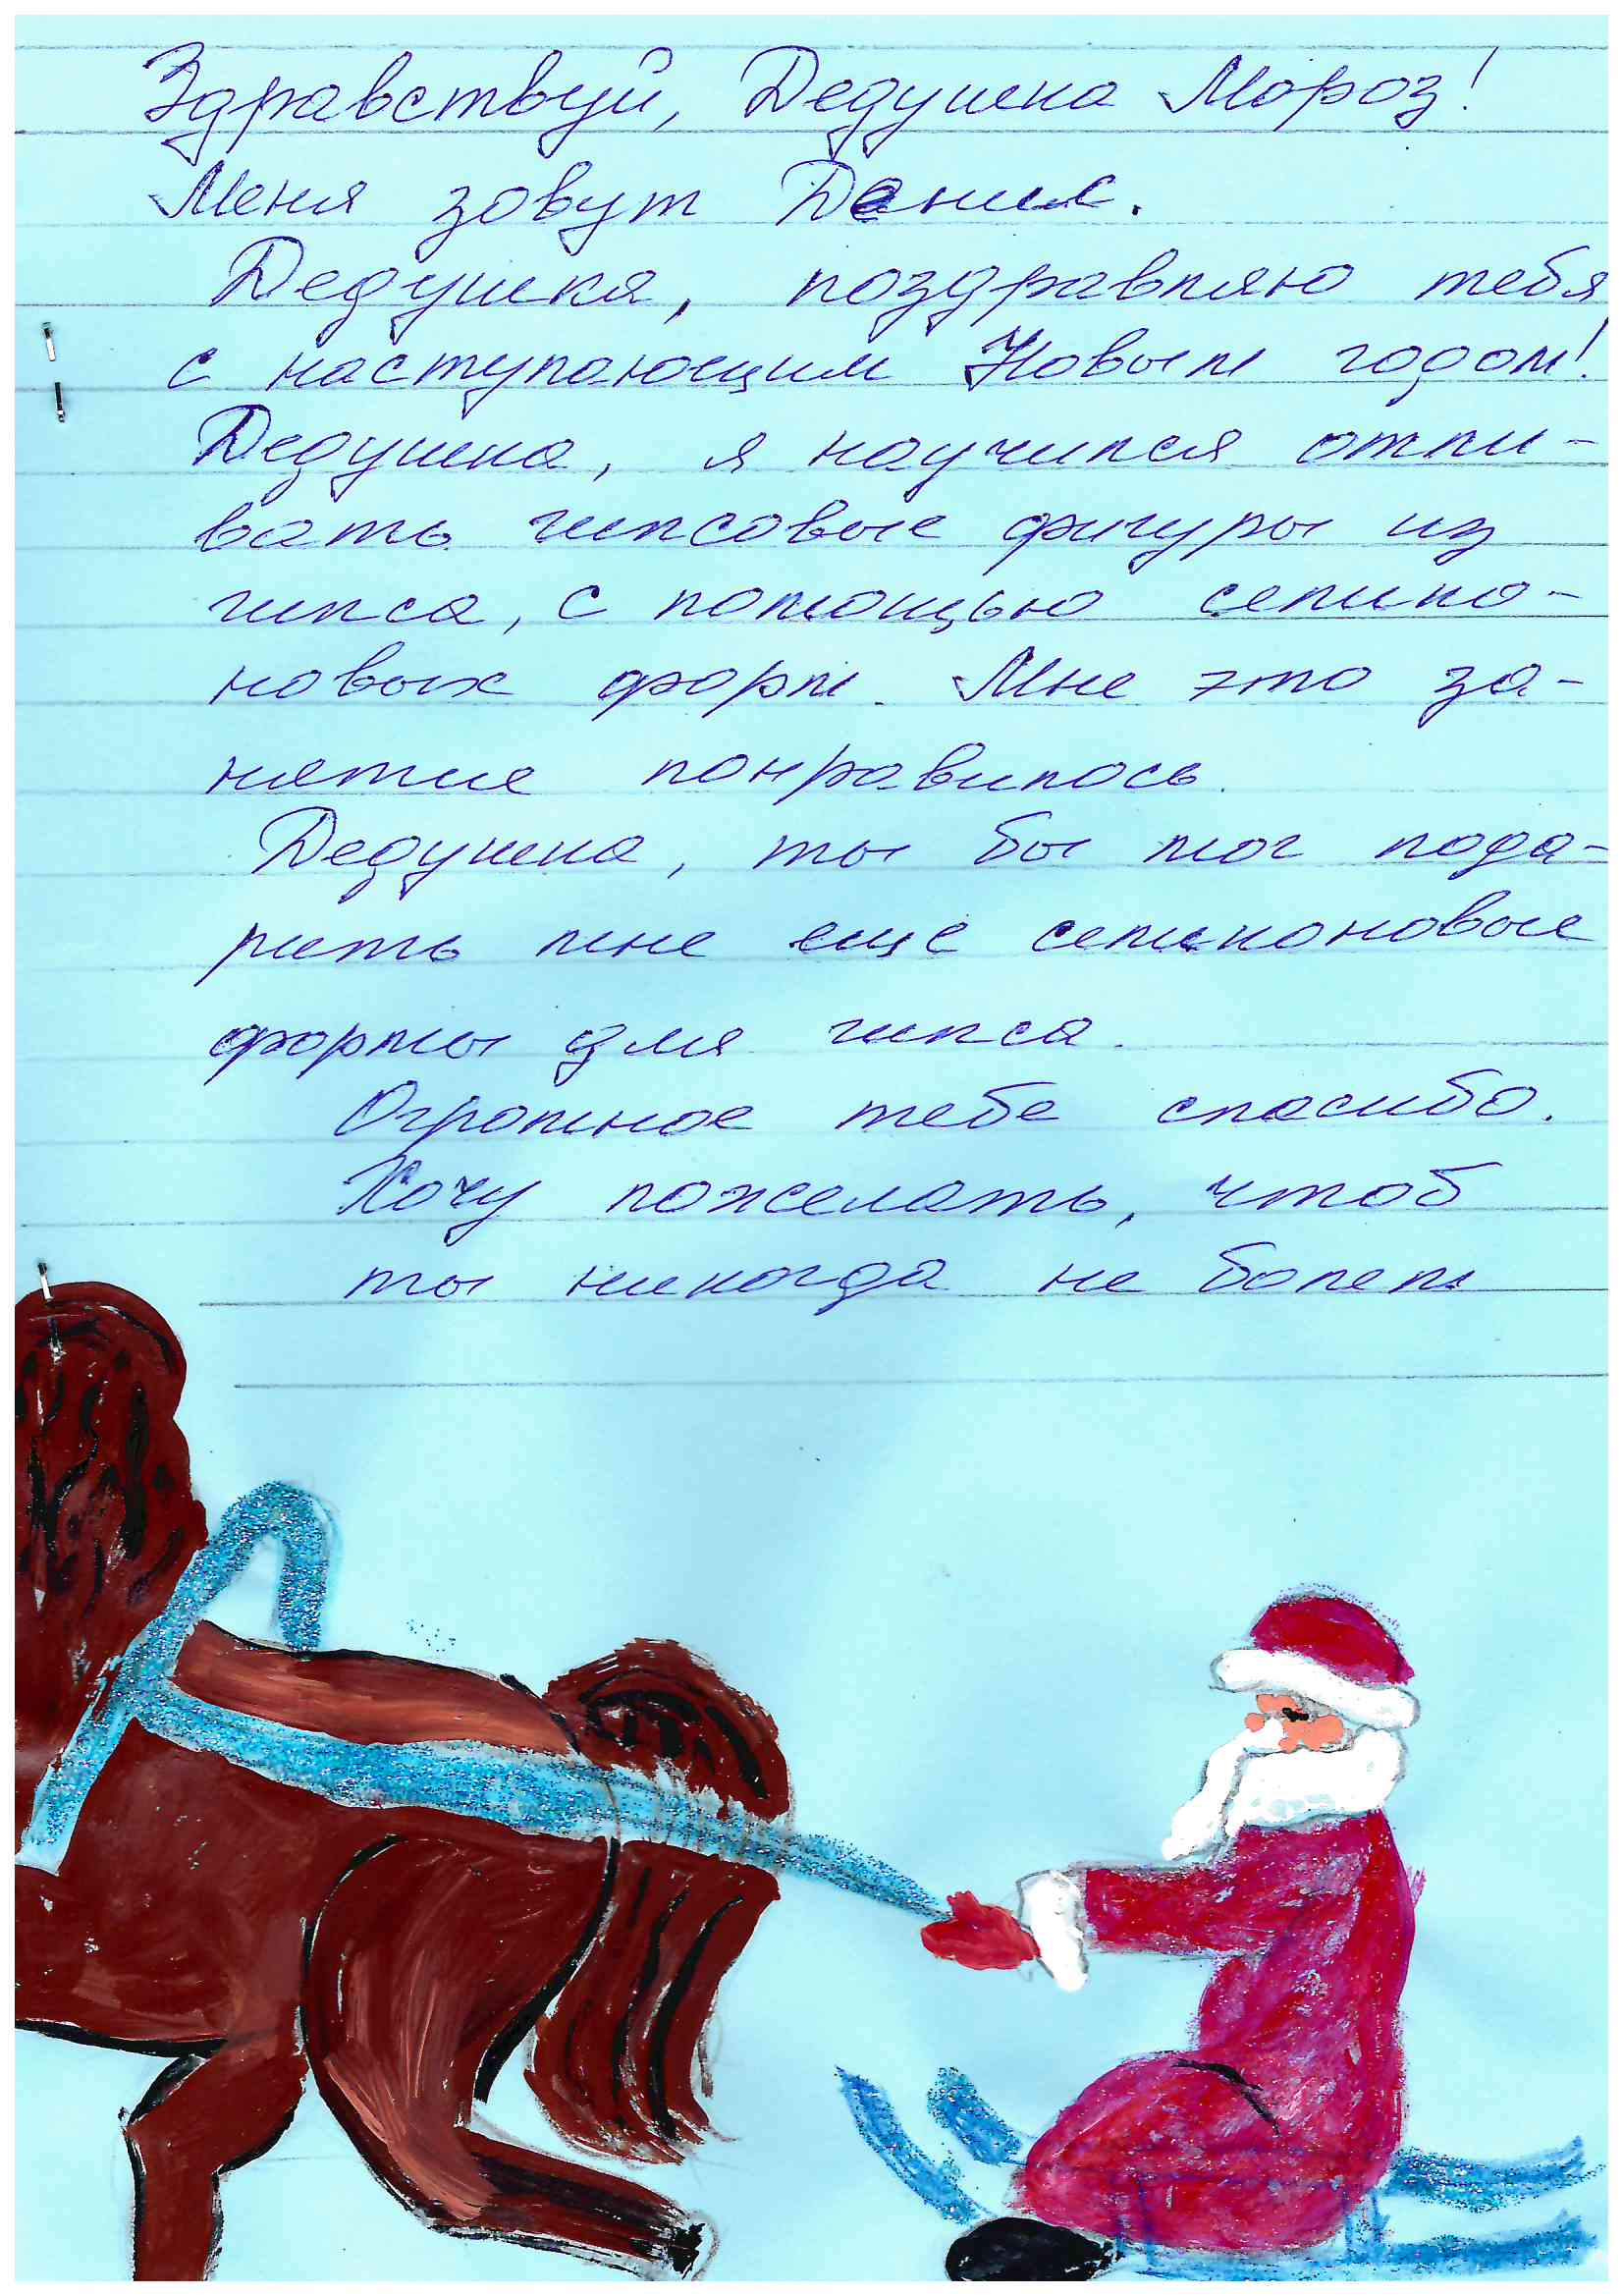 Здравствуй, Дедушка Мороз!
Меня зовут Данис.
Дедушка, поздравляю тебя
с наступающим Новым годом!
Дедушка, я научился отли-
вать гипсовые фигуры из
гипса, с помощью селико-
новых форм. Мне это за-
нятие понравилось.
Дедушка, ты бы мог пода-
рить мне еще селиконовые
формы для гипса.
Огромное тебе спасибо.
Хочу пожелать, чтоб
ты никогда не болел